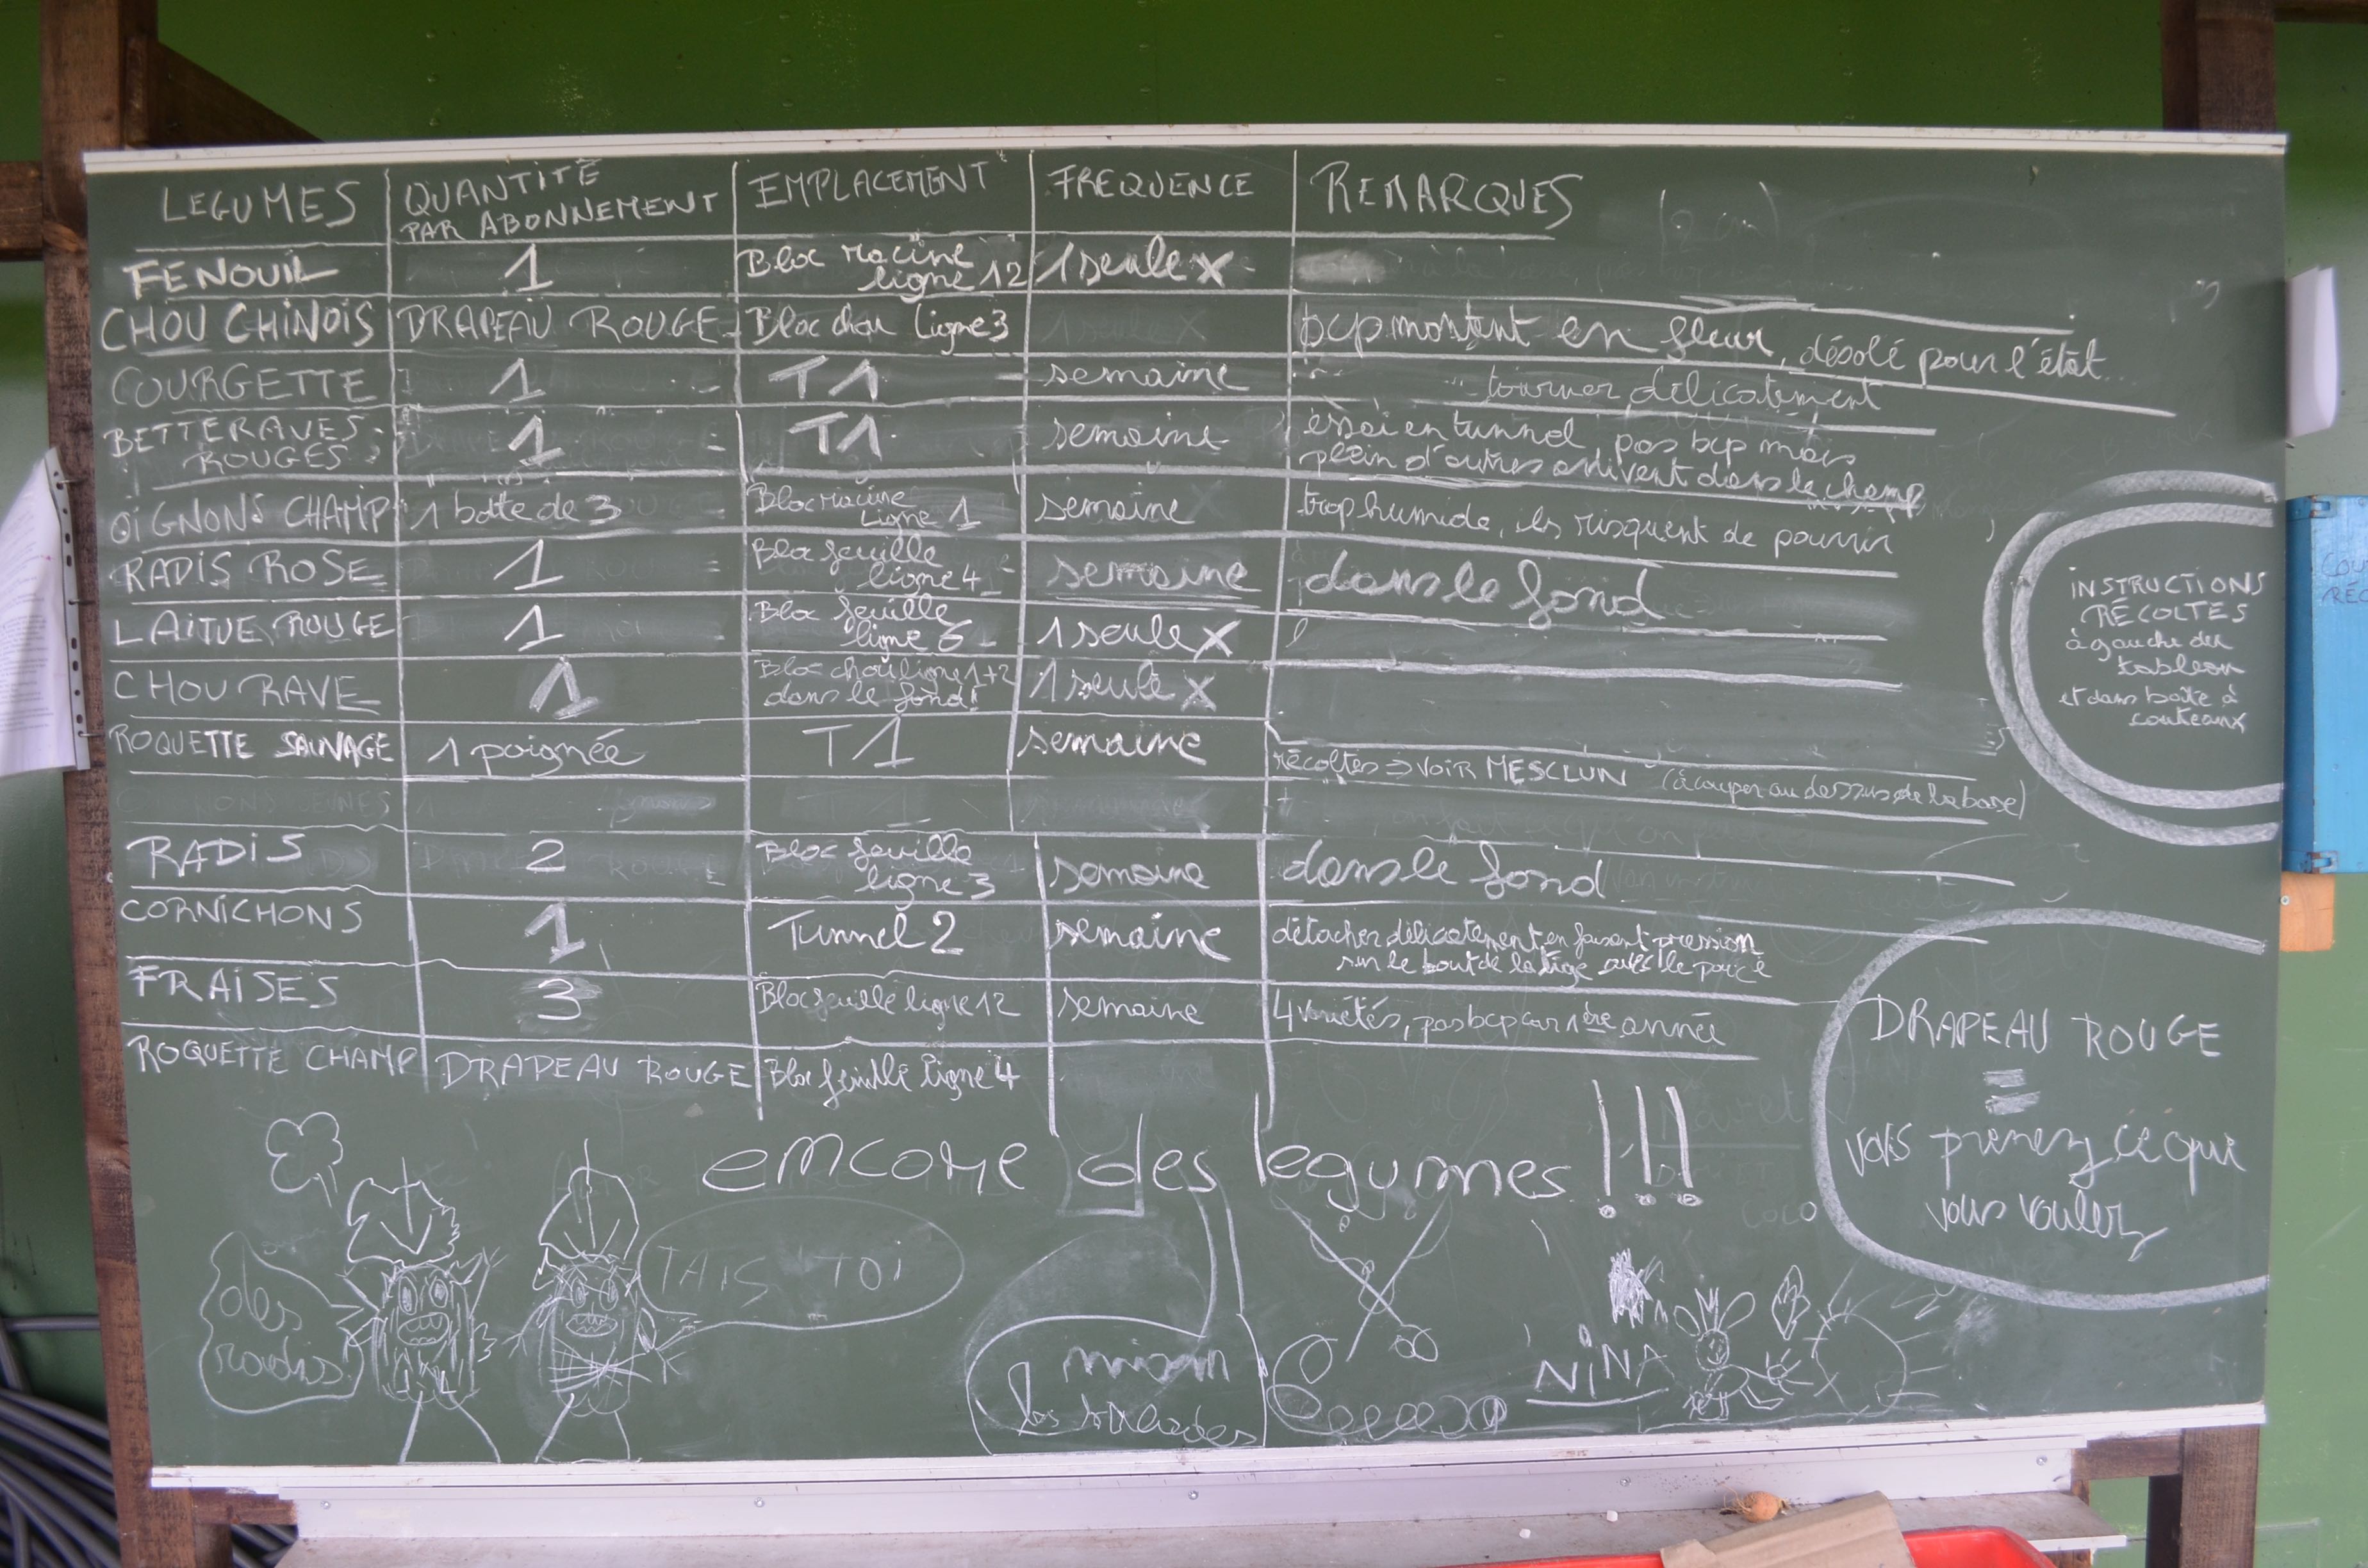 LEGUMES QUANTITÉ PAR ABONNEMENT EMPLACEMENT FREQUENCE REMARQUES
FENOUIL 1 Bloc racine ligne 12 1 seule x
CHOU CHINOIS DRAPEAU ROUGE Bloc chou Ligne 3 1 seule x bcp montent en fleur, désolé pour l'état
COURGETTE 1 T1 semaine tourner délicatement
BETTERAVES ROUGES 1 T1 semaine essai en tunnel, pas bcp mais
plein d'autres arrivent dans le champ
OIGNONS CHAMP 1 botte de 3 Bloc racine Ligne 1 semaine trop humide, ils risquent de pourrir
RADIS ROSE 1 Bloc feuille ligne 4 semaine dans le fond
LAITUE ROUGE 1 Bloc feuille ligne 6 1 seule x
CHOU RAVE 1 Bloc chou ligne 1+2 dans le fond! 1 seule x
ROQUETTE SAUVAGE 1 poignée T1 semaine récoltes => VOIR MESCLUN (à couper au dessus de la base)
RADIS 2 Bloc feuille ligne 3 semaine dans le fond
CORNICHONS 1 Tunnel 2 semaine détacher délicatement en faisant pression
sur le bout de la tige avec le pouce
FRAISES 3 Bloc feuille ligne 12 semaine 4 variétés, pas bcp car 1ère année
ROQUETTE CHAMP DRAPEAU ROUGE Bloc feuille ligne 4
INSTRUCTIONS
RÉCOLTES
à gauche du
tableau
et dans boîte à
couteaux
DRAPEAU ROUGE
=
vous prenez ce qui
vous voulez
encore des legumes !!!
des
radis
THIS TOI
miam
NINA
COCO